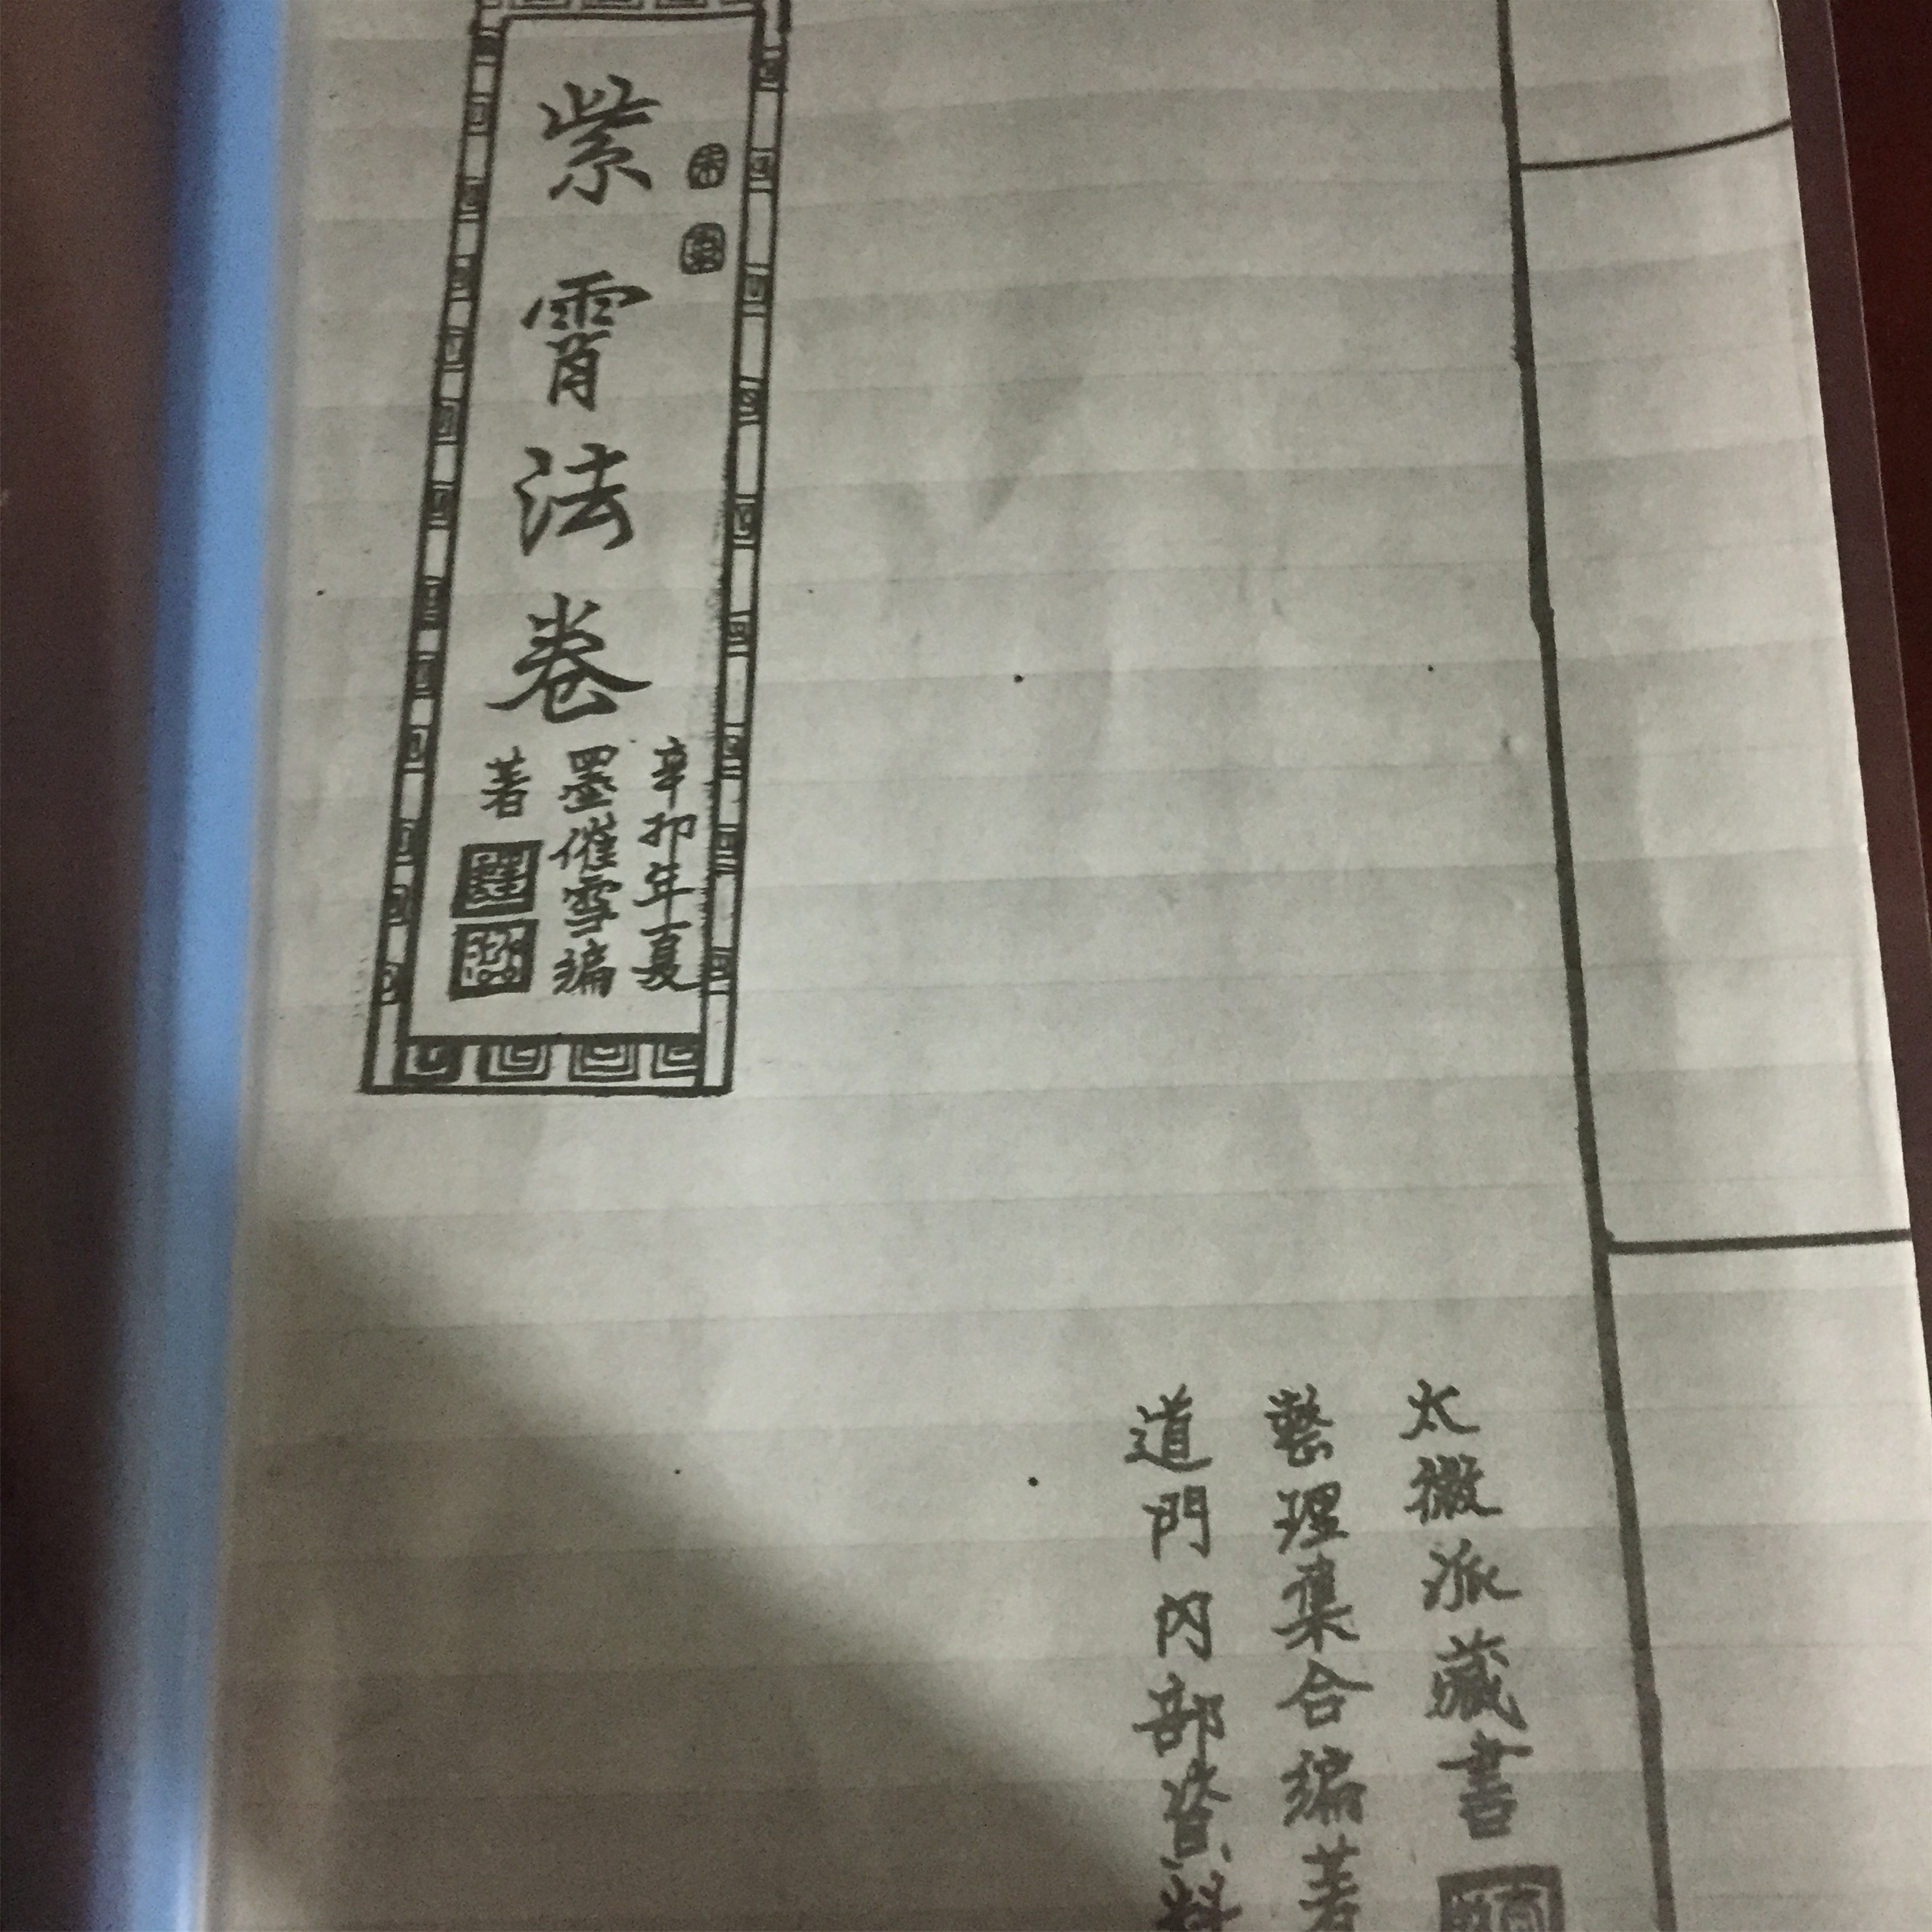 太微派藏書
整理集合編著
道門内部資料
紫霄法卷
辛卯年夏
墨催雪編
著